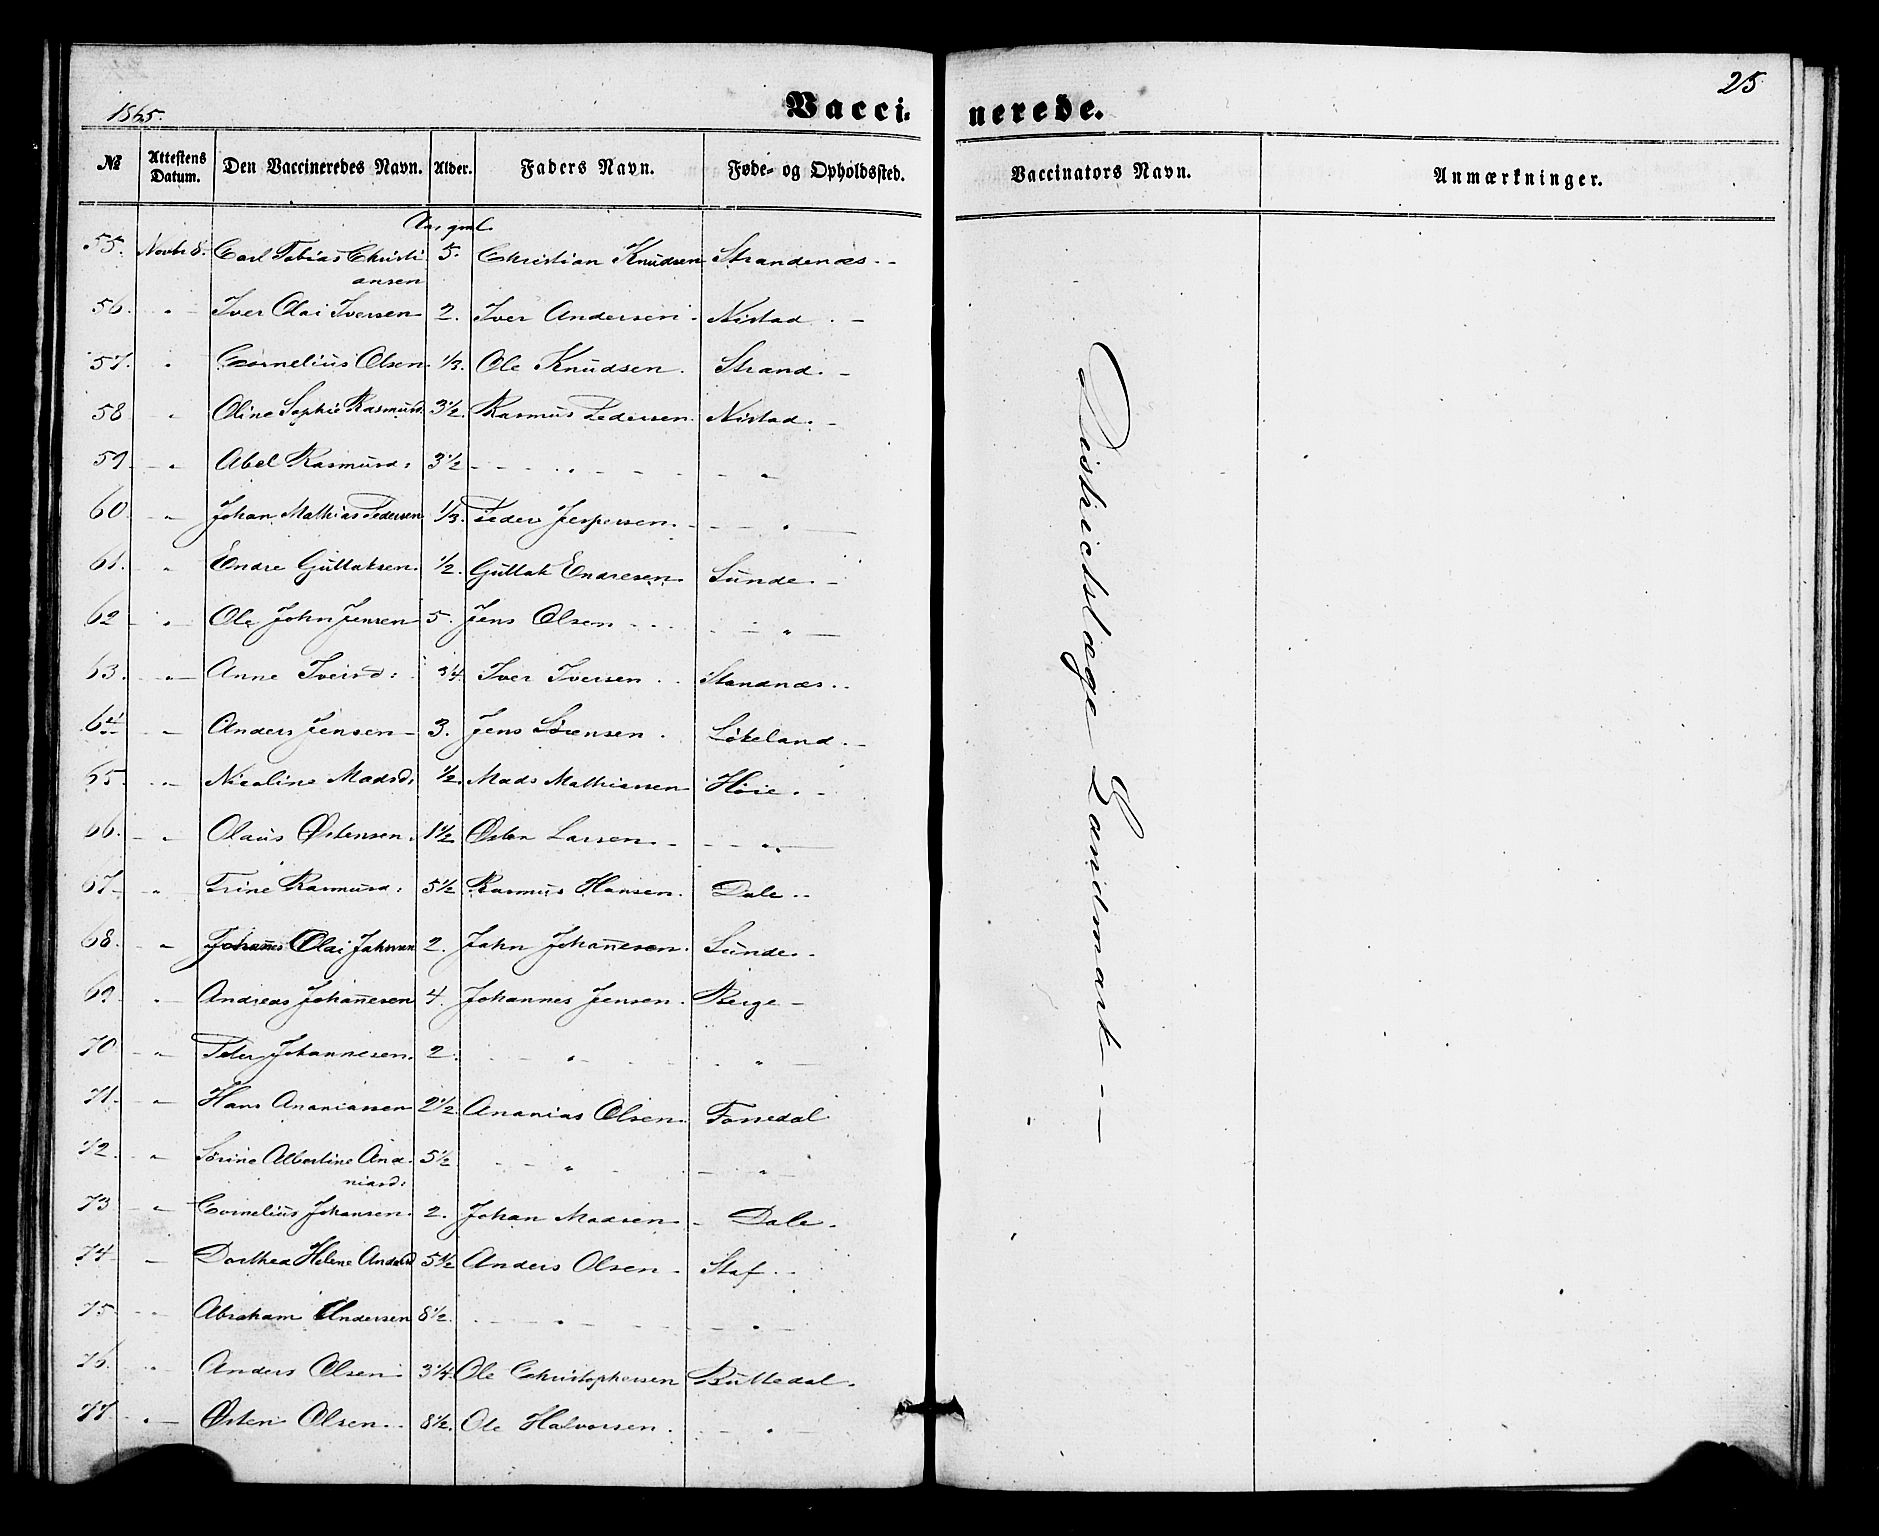 25
1865.
Vacci-nerede.
№ Attestens Datum. Den Vaccineredes Navn. Alder. Faders Navn. Føde- og Opholdssted. Vaccinators Navn. Anmærkninger.
55. Novbr 8. Carl Tobias Christi 5. Christian Knudsen Strandenæs. -
ansen
56. " Iver Olai Iversen 2. Iver Andersen. Nistad. -
57. " Cornelius Olsen. 1/3. Ole Knudsen. Strand. -
58 " Oline Sophie Rasmusd. 3 1/2. Rasmus Pedersen. Nistad. -
59 - " Abel Rasmusd: 3 1/2 - - " - - "
60. - " Johan Mathias Pedersen 1/3. Peder Jespersen. - - - " -
61. " Endre Guttaksen. 1/2. Guttak Endresen. Sunde. -
62 - " Ole John Jensen 5. Jens Olsen - - - - " -
63. - " - Anne Iversd: 3/4. Iver Iversen. Standnæs. .
64 - " Anders Jensen - 3. Jens Sørensen. Løkeland. -
65 - " Nicoline Madsd: 1/2. Mads Mathiassen Høie. -
66. - " Olaus Østensen. 1 1/2 Østen Larsen. - - - " -
67 - " Trine Rasmusd: 5 1/2 Rasmus Hansen. Dale. .
68. - " Johannes Olai Johnsen 2. John Johannesen. Sunde. -
69 - " - Andreas Johannesen 4. Johannes Jensen. Berge -
70 - " Peder Johannesen. 2. - - " - - "
71. - " Hans Ananiassen 2 1/2. Ananias Olsen. Fossedal
72. - " Sørine Albertine Ana 5 1/2 - - " - - " -
niasd:
73 - " Cornelius Johansen. 2. Johan Madsen - Dale.
74 - Dorthea Helene Andersd 5 1/2 Anders Olsen - Staf. -
75. - " Abraham Andersen 8 1/2. - - " - - " -
76. " Anders Olsen. 3 1/4. Ole Christophersen Buttedal.
77 - " - Østen Olsen. . 8 1/2. Ole Halvorsen. - - "
Districtslæge Landmark -